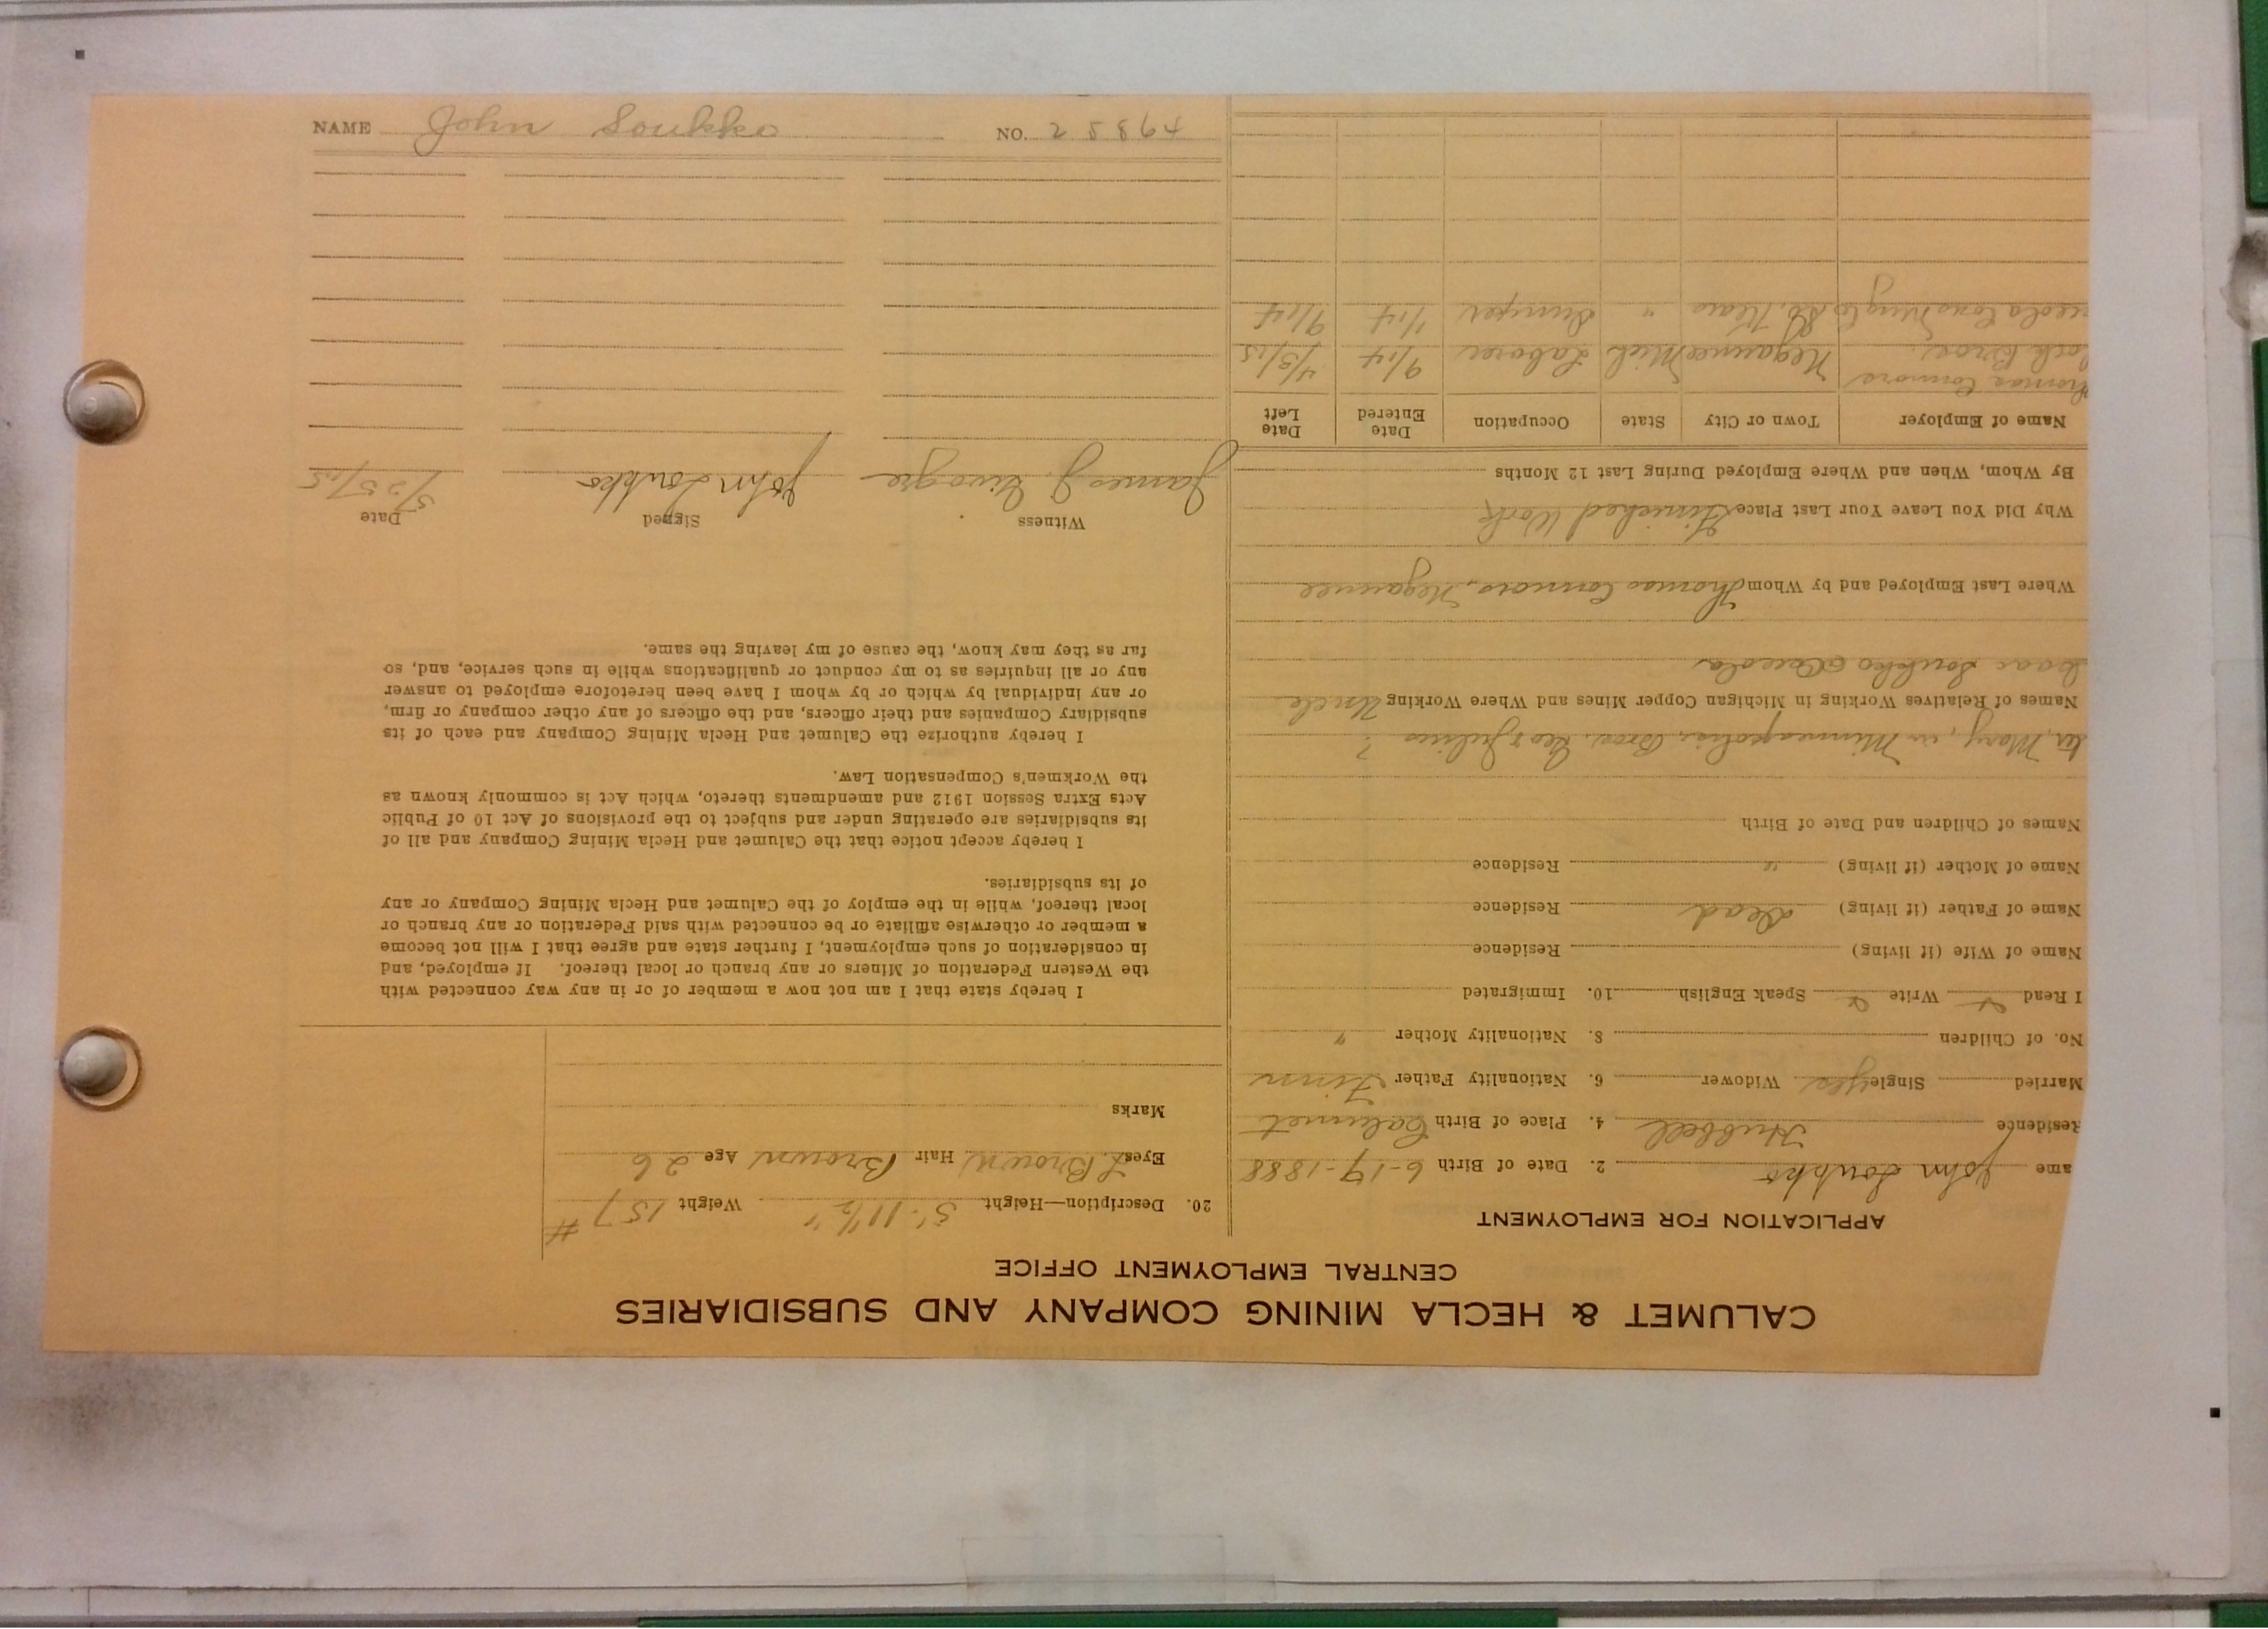 CALUMET & HECLA MINING COMPANY AND SUBSIDIARIES
CENTRAL EMPLOYMENT OFFICE
APPLICATION FOR EMPLOYMENT
ame John Soukko 2. Date of Birth 6-17-1888
Residence Hubbell 4. Place of Birth Calumet
Married Single yes Widower 6. Nationality Father Finn
No. of Children 8. Nationality Mother "
I Read Write Speak English 10. Immigrated
Name of Wife (if living) Residence
Name of Father (if living) Dead Residence
Name of Mother (if living) " Residence
Names of Children and Date of Birth
Mary, in Minneapolis, Bros. Geo & Julius ?
Names of Relatives Working in Michigan Copper Mines and Where Working Uncle
Isaac Soukko Osceola
Where Last Employed and by Whom Thomas Connors, Negaunee
Why Did You Leave Your Last Place Finished Work
By Whom, When and Where Employed During Last 12 Months
Name of Employer Town or City State Occupation Date Entered Date Left
homas Connors
Bros. Negaunee Mich Laborer 9/14 4/3/15
ceola Cons Ming Co " 1/14 9/14
20. Description—Height 5'-11½" Weight 157 #
Eyes L Brown Hair Brown Age 26
Marks
I hereby state that I am not now a member of or in any way connected with
the Western Federation of Miners or any branch or local thereof. If employed, and
in consideration of such employment, I further state and agree that I will not become
a member or otherwise affiliate or be connected with said Federation or any branch or
local thereof, while in the employ of the Calumet and Hecla Mining Company or any
of its subsidiaries.
I hereby accept notice that the Calumet and Hecla Mining Company and all of
its subsidiaries are operating under and subject to the provisions of Act 10 of Public
Acts Extra Session 1912 and amendments thereto, which Act is commonly known as
the Workmen's Compensation Law.
I hereby authorize the Calumet and Hecla Mining Company and each of its
subsidiary Companies and their officers, and the officers of any other company or firm,
or any individual by which or by whom I have been heretofore employed to answer
any or all inquiries as to my conduct or qualifications while in such service, and, so
far as they may know, the cause of my leaving the same.
Witness Signed Date
James J. John Soukko 5/25/15
NAME John Soukko NO. 25864